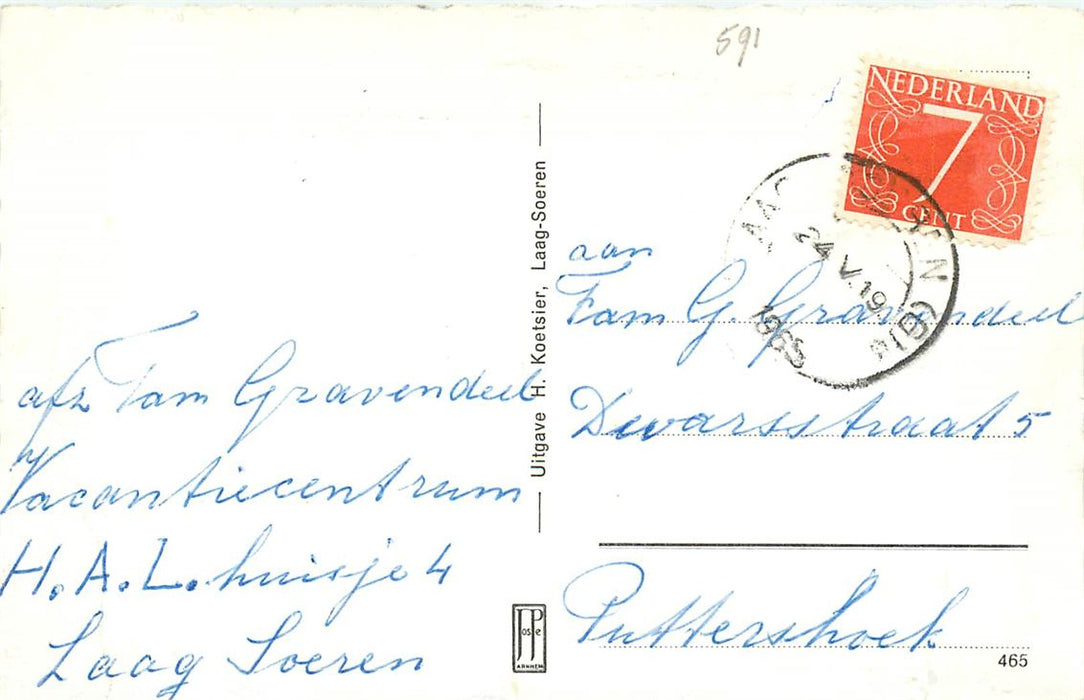 591
NEDERLAND
7
CENT
24 V.19
1965
afz Fam Gravendeel
Vacantiecentrum
H.A.L. huisje 4
Laag Soeren
Uitgave H. Koetsier, Laag-Soeren
JosPe
ARNHEM
aan
Fam G. Gravendeel
Dwarsstraat 5
Puttershoek
465